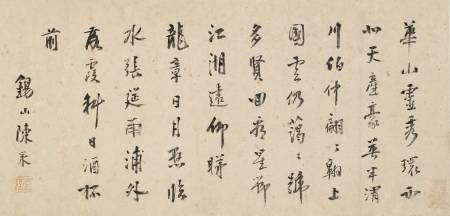 華山靈秀環西
北天產豪英半渭
川伯仲翩〻翱上
國雲仍藹〻號
多賢回看星節
江湖遠仰睇
龍章日月懸臨
水張筵南浦外
落霞斜日酒杯
前
錫山陳